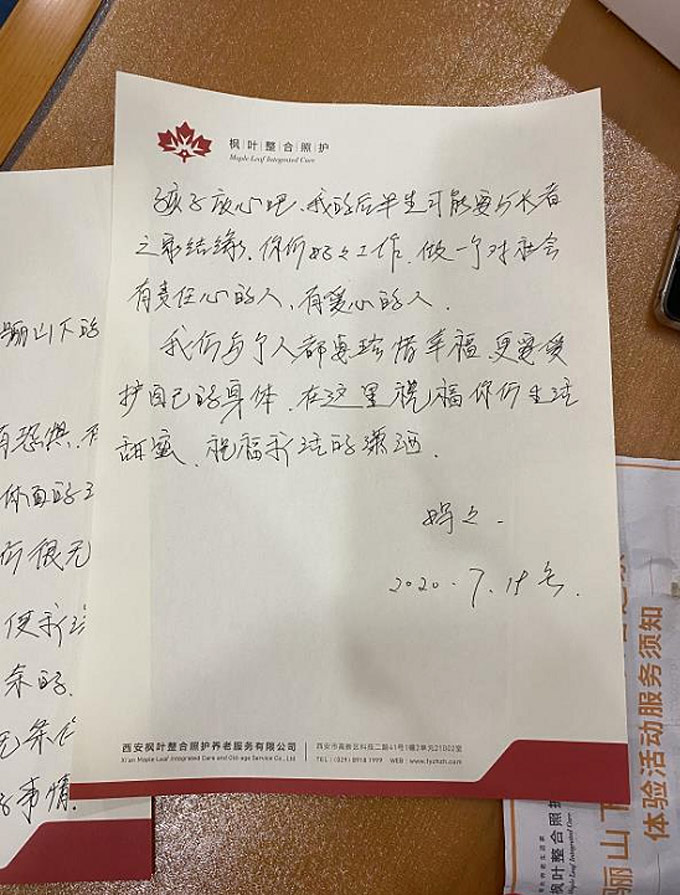 枫叶整合照护
Maple Leaf Integrated Care
孩子放心吧、我的后半生可能要与长者
之家结缘、你们好之工作、做一个对社会
有责任心的人、有爱心的人.
我们每个人都要珍惜幸福、更要爱
护自己的身体、在这里祝福你们生活
甜蜜、祝福我活的潇洒.
妈之.
2020.7.19号.
西安枫叶整合照护养老服务有限公司
Xi'an Maple Leaf Integrated Care and Old-age Service Co., Ltd
西安市高新区科技二路41号1幢2单元21002室
TEL : (029) 8918 1999 WEB : www.fyzhzh.com
骊山下的
有恐惧、
体面的
们很无
使我活
条的.
无条件
事情.
体验活动服务须知
丽山下
枫叶整合照护